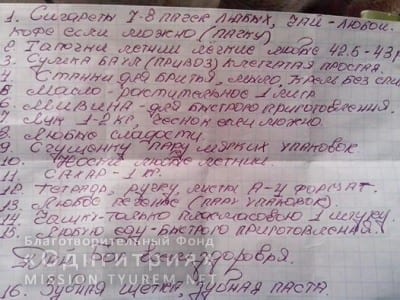 1. Сигареты 7-8 пачек любых, чай - любой.
кофе если можно (пачку)
2 Тапочки летнии лёгкие любые 42.5-43р
3. Сумка баул (привоз) клетчатая простая.
4 Станки для бритья, мыло, крем без
5 Масло - растительное 1 литр
6. Мивина - для быстрого приготовления.
7 Лук 1-2 кг, чеснок если можно.
8. Любые сладости.
9. Сгущенку пару мягких упаковок
10. Носки любые летнии.
11. Сахар - 1 кг.
12. Тетрадь, ручку, листы А-4 формат.
13. Любое печенье (пару упаковок).
14. Чашку - только пласмасовую 1 штуку.
15. Любую еду - быстрого приготовления.
Благотворительный Фонд
MISSION TYUREM.NET
Дай Бог Вам здоровья
16. Зубная щётка, зубная паста.